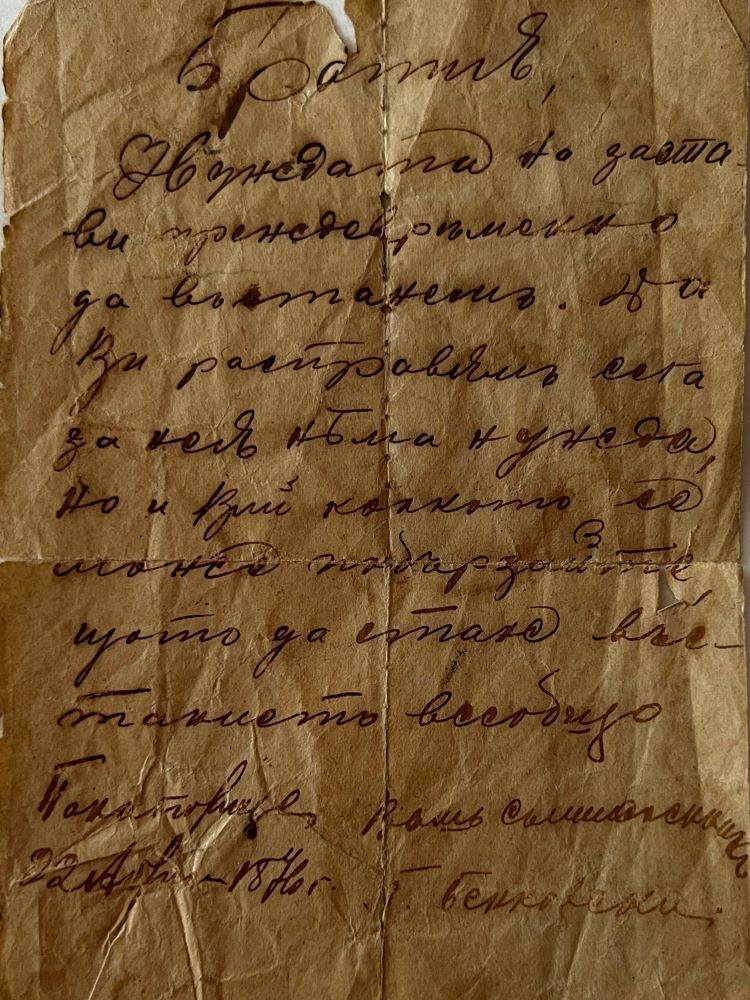 Братия,
Нуждата на заста-
ви преждевръменно
да въстанемъ. Да
Ви расправямъ сега
за нея нѣма нужда,
но и Вий колкото се
може побързайте,
щото да стане въс-
танието всеобщо
Панагюрище, Вашъ съмишленникъ
22 Април 1876 г. Г. Бенковски.